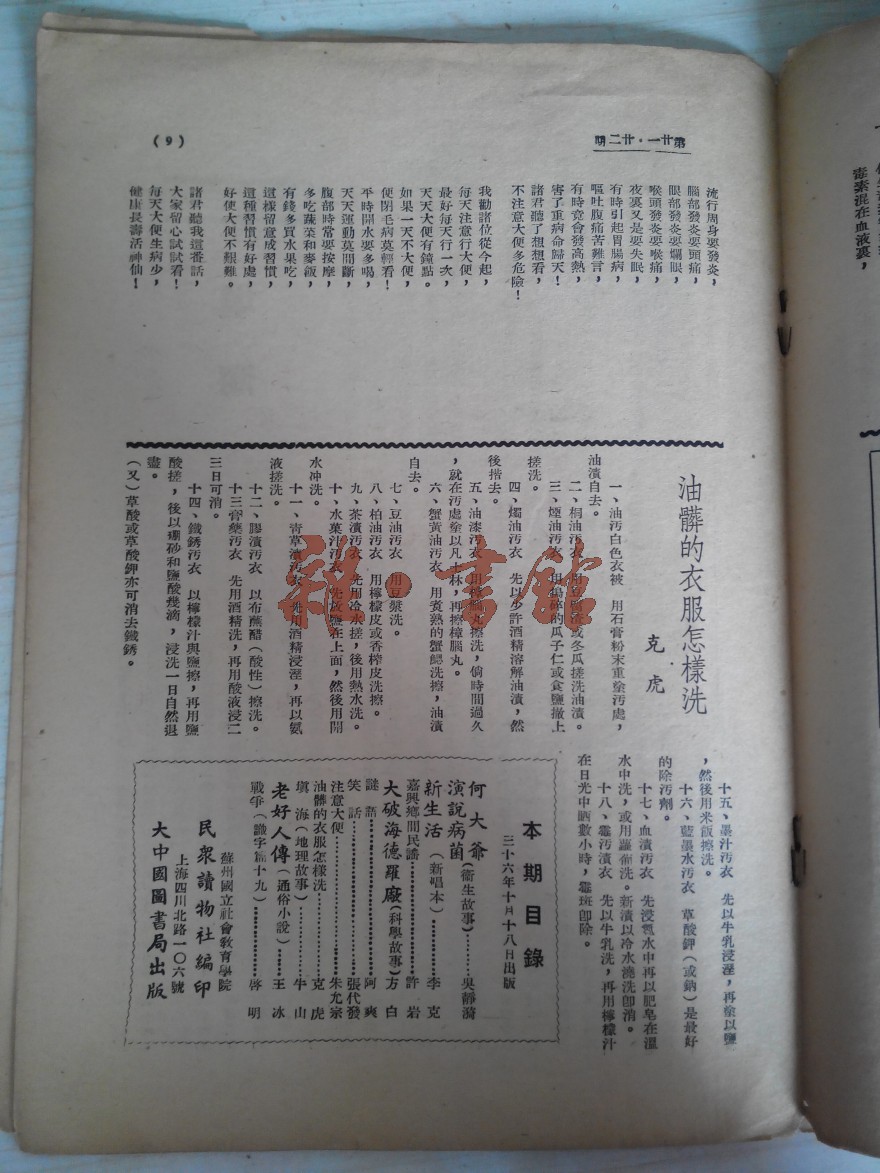 第廿一・廿二期
(9)
毒素混在血液裏，
流行周身要發炎，
腦部發炎要頭痛，
眼部發炎要爛眼，
喉頭發炎要喉痛，
夜裏又是要失眠，
有時引起胃腸病，
嘔吐腹痛苦難言，
有時竟會發高熱，
害了重病命歸天！
諸君聽了想想看，
不注意大便多危險！
我勸諸位從今起，
每天注意行大便，
最好每天行一次，
天天大便有鐘點。
如果一天不大便，
便閉毛病莫輕看！
平時開水要多喝，
天天運動莫間斷，
腹部時常要按摩，
多吃蔬菜和麥飯，
有錢多買水果吃，
這樣留意成習慣，
這種習慣有好處，
好使大便不艱難。
諸君聽我這番話，
大家留心試試看！
每天大便生病少，
健康長壽活神仙！
油髒的衣服怎樣洗
克虎
一、油污白色衣被　用石膏粉末重塗污處，
油漬自去。
二、桐油污衣　用豆腐渣或冬瓜搓洗油漬。
三、煙油污衣　用搗碎的瓜子仁或食鹽撒上
搓洗。
四、燭油污衣　先以少許酒精溶解油漬，然
後揩去。
五、油漆污衣　用樟腦丸擦洗，倘時間過久
，就在污處塗以凡士林，再擦樟腦丸。
六、蟹黃油污衣　用煮熟的蟹鰓洗擦，油漬
自去。
七、豆油污衣　用豆漿洗。
八、柏油污衣　用檸檬皮或香榨皮洗擦。
九、茶漬污衣　先用冷水搓，後用熱水洗。
十、水菓汁污衣　先放鹽在上面，然後用開
水冲洗。
十一、青草漬污衣　先用酒精浸溼，再以氨
液搓洗。
十二、膠漬污衣　以布蘸醋（酸性）擦洗。
十三膏藥污衣　先用酒精洗，再用酸液浸二
三日可消。
十四、鐵銹污衣　以檸檬汁與鹽擦，再用鹽
酸搓，後以硼砂和鹽酸幾滴，浸洗一日自然退
盡。
（又）草酸或草酸鉀亦可消去鐵銹。
十五、墨汁污衣　先以牛乳浸溼，再塗以鹽
，然後用米飯擦洗。
十六、藍墨水污衣　草酸鉀（或鈉）是最好
的除污劑。
十七、血漬污衣　先浸氨水中再以肥皂在溫
水中洗，或用蘿蔔洗。新漬以冷水漉洗卽消。
十八、霉污漬衣　先以牛乳洗，再用檸檬汁
在日光中晒數小時，霉斑卽除。
本期目錄
三十六年十月十八日出版
何大爺（衞生故事）……吳靜漪
演說病菌
新生活（新唱本）……李克
嘉興鄉間民謠……許岩
大破海德羅廠（科學故事）方白
謎語……阿爽
笑話……張代發
注意大便……朱允宗
油髒的衣服怎樣洗……克虎
填海（地理故事）……牛山
老好人傳（通俗小說）……王冰
戰爭（識字篇十九）……啓明
蘇州國立社會教育學院
民衆讀物社編印
上海四川北路一〇六號
大中國圖書局出版
雜・書館